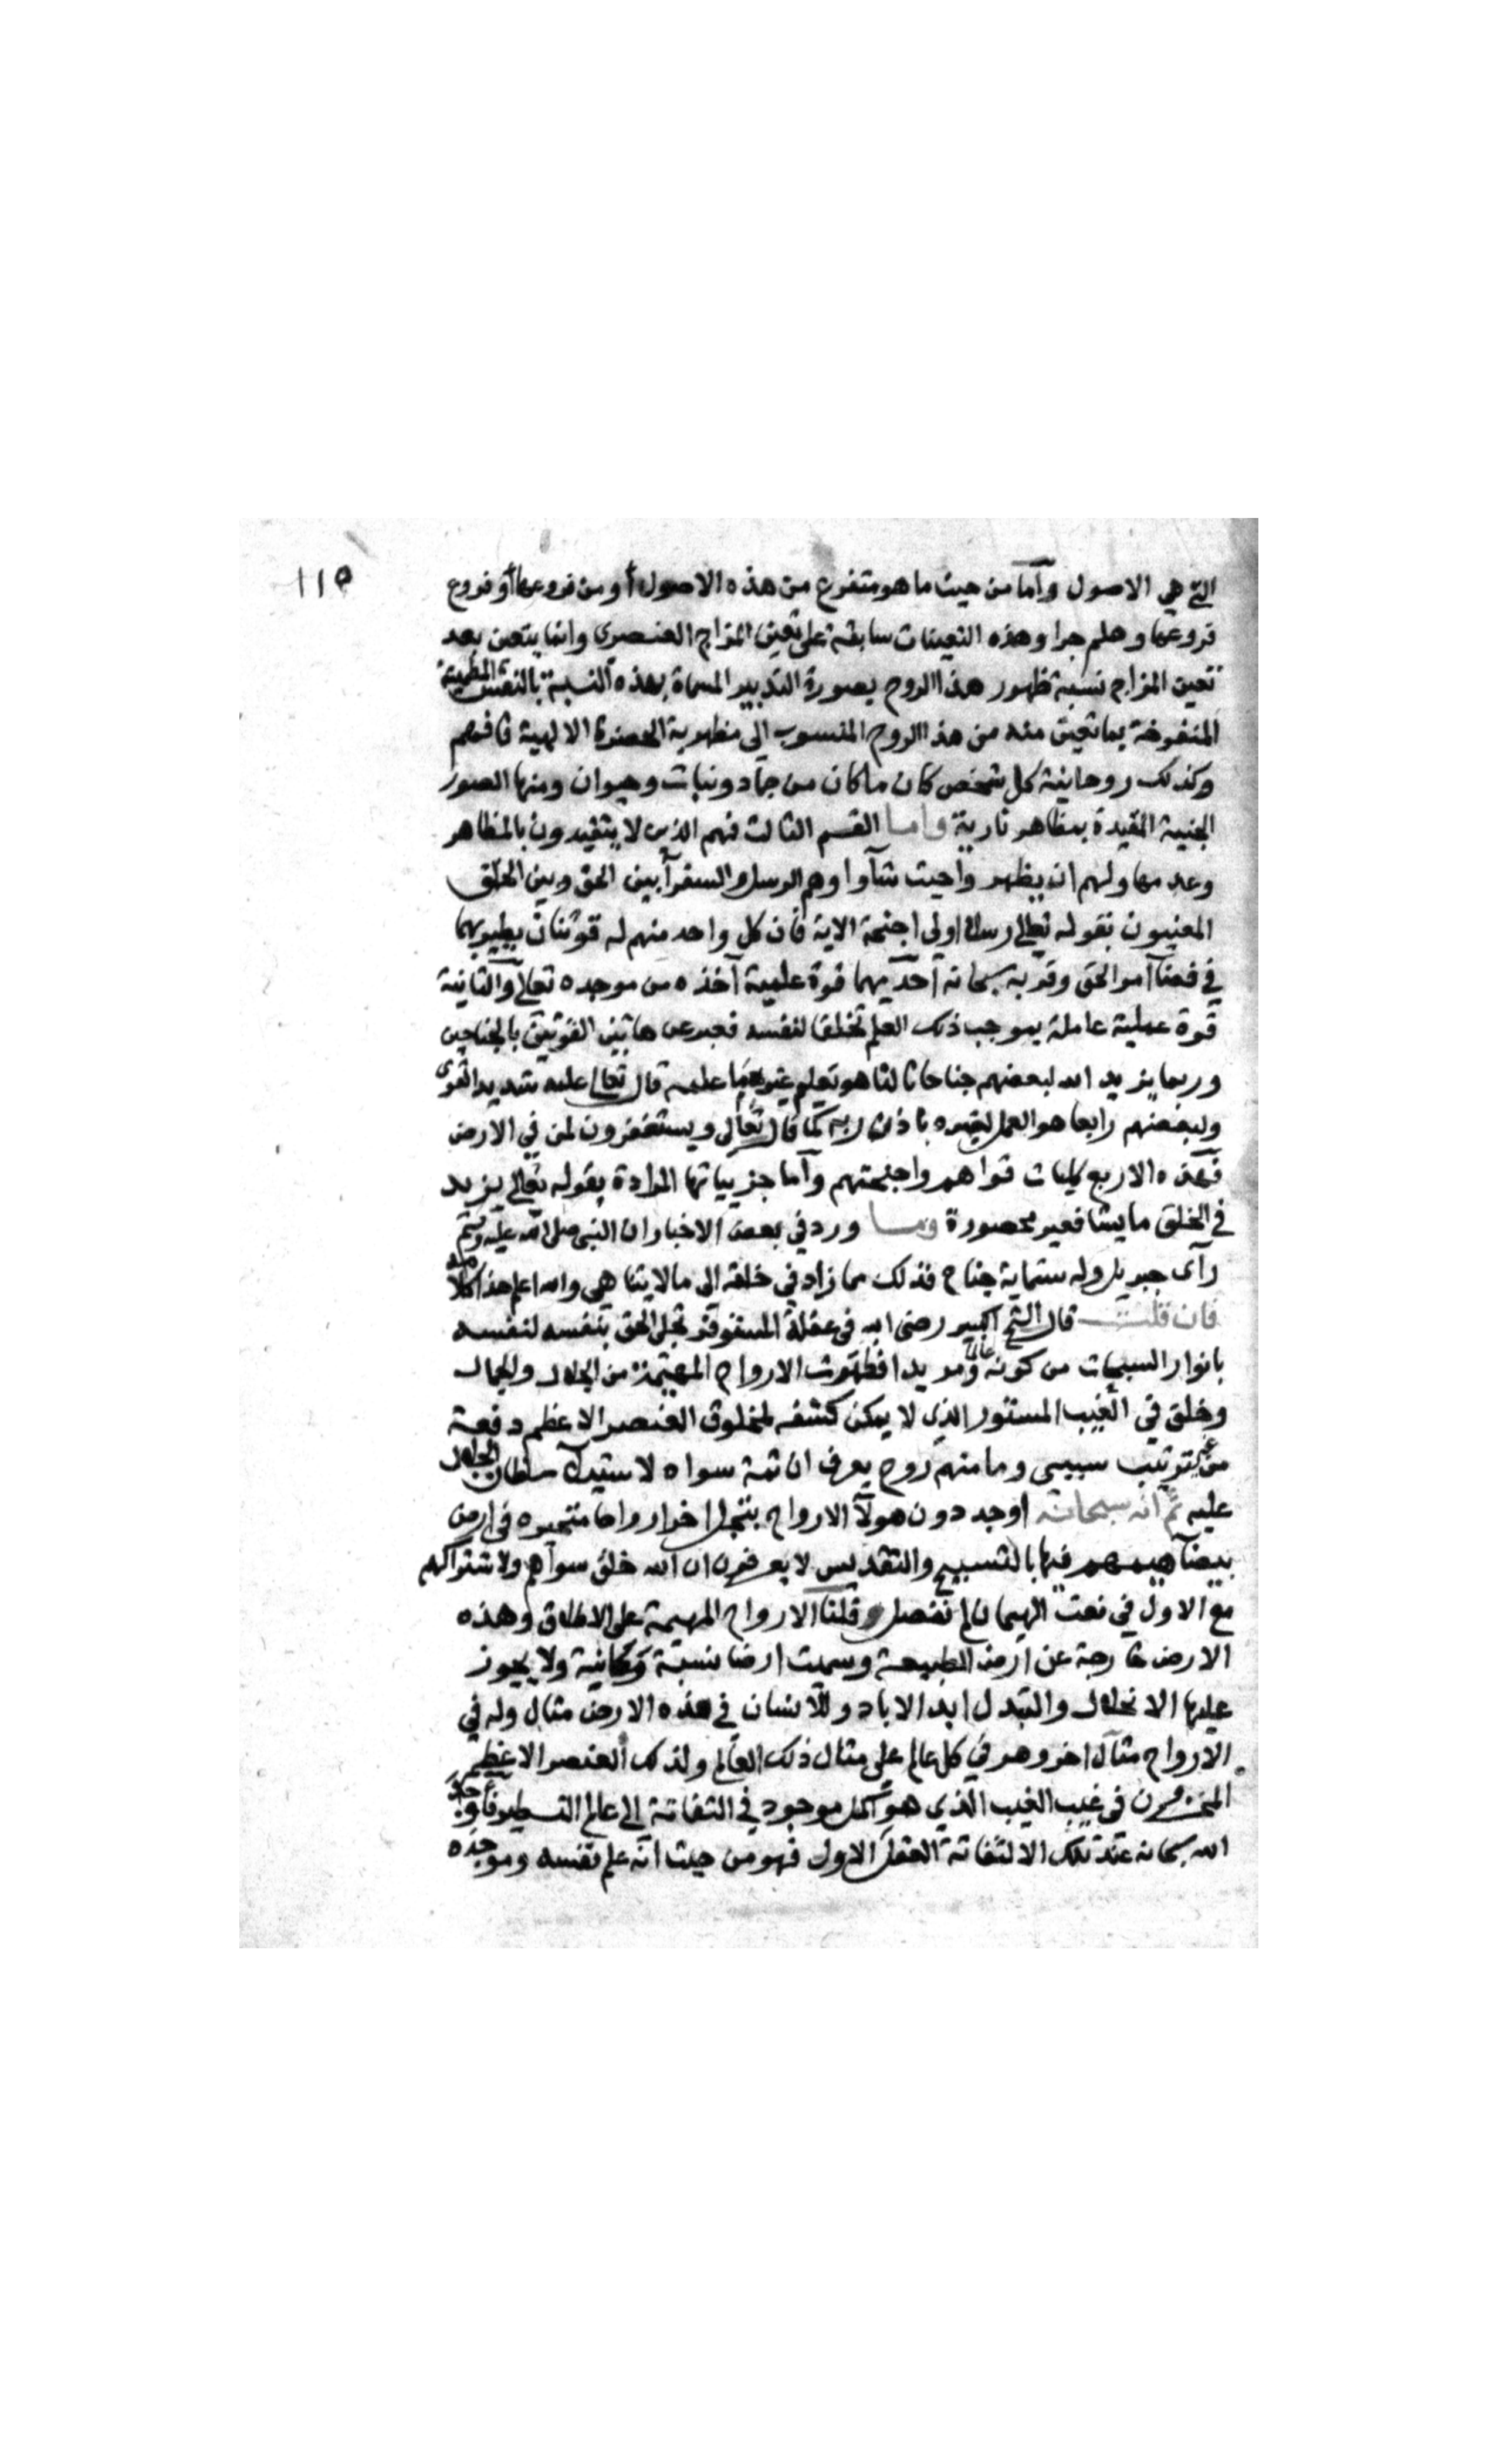 ١١٥
التي هي الاصول وأما من حيث ما هو متفرع من هذه الاصول أو من فروعها أو فروع
فروعها وهلم جرا وهذه التعينات سابقة على تعين المزاج العنصري وانما يتعين بعد
تعين المزاج نسبة ظهور هذا الروح بصورة التدبير المسماة بهذه النسبة بالنفس
المنفوخة بما تعين منه من هذا الروح المنسوب الى مظهرية الحضرة الالهية فافهم
وكذلك روحانية كل شخص كان ما كان من جماد ونبات وحيوان ومنها الصور
الجنية المقيدة بمظاهر نارية واما القسم الثالث فهم الذين لا يتقيدون بالمظاهر
وعدمها ولهم ان يظهروا حيث شآوا وهم الرسل والسفرآ بين الحق وبين الخلق
المعنيون بقوله تعالى رسلا اولى اجنحة الاية فان كل واحد منهم له قوتان يطير بهما
في فضآ امر الحق وقربه سبحانه احديهما قوة علمية آخذه من موجده تعالى والثانية
قوة عملية عاملة بموجب ذلك العلم تخلقا لنفسه فعبر عن هاتين القوتين بالجناحين
وربما يزيد الله لبعضهم جناحا ثالثا هو تعليم غيره مما علمه قال تعالى علمه شديد القوى
ولبعضهم رابعا هو العمل لغيره باذن ربه كما قال تعالى ويستغفرون لمن في الارض
فهذه الاربع كليات قواهم واجنحتهم وأما جزيياتها المرادة بقوله تعالى يزيد
في الخلق ما يشا فغير محصورة وما ورد في بعض الاخبار ان النبي صلى الله عليه وسلم
رآى جبريل وله ستماية جناح فذلك مما زاد في خلقه الى ما لا يتناهى والله اعلم هذا كلامه
فان قلت قال الشيخ الكبير رضى الله في عقلة المستوفز تجلى الحق بنفسه لنفسه
بانوار السبحات من كونه عالما ومريدا فظهرت الارواح المهيمة من الجلال والجمال
وخلق في الغيب المستور الذي لا يمكن كشفه لمخلوق العنصر الاعظم دفعة
من غير ترتيب سببى وما منهم روح يعرف ان ثمة سواه لاستيلآ سلطان الجلال
عليه ثم انه سبحانه اوجد دون هولآ الارواح بتجل اخر ارواحا متحيزه في ارض
بيضآ هيمهم فيها بالتسبيح والتقديس لا يعرفون ان الله خلق سواهم ولاشتراكهم
مع الاول في نعت الهيمان لم نفصل وقلنا الارواح المهيمة على الاطلاق وهذه
الارض خارجة عن ارض الطبيعة وسميت ارضا نسبة مكانية ولا يجوز
عليها الانحلال والتبدل ابد الاباد وللانسان في هذه الارض مثال وله في
الارواح مثال اخر وهو في كل عالم على مثال ذلك العالم ولذلك العنصر الاعظم
المخزون في غيب الغيب الذي هو اكمل موجود في التفاتة الى عالم التسطير فاوجد
الله سبحانه عند تلك الالتفاتة العقل الاول فهو من حيث انه علم نفسه وموجده